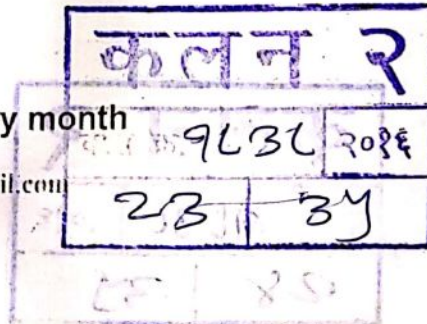 कलन २
y month
१८३८ २०१६
il.com
२३ ३५